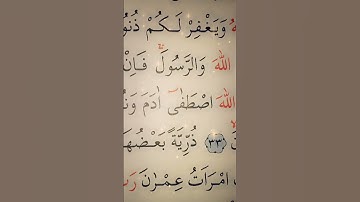 وَيَغْفِرْ لَكُمْ
اللّٰهَ وَالرَّسُولَۚ فَاِنْ
اللّٰهَ اصْطَفٰىٓ اٰدَمَ
﴿٣٣﴾ ذُرِّيَّةً بَعْضُهَا
امْرَاَتُ عِمْرٰنَ